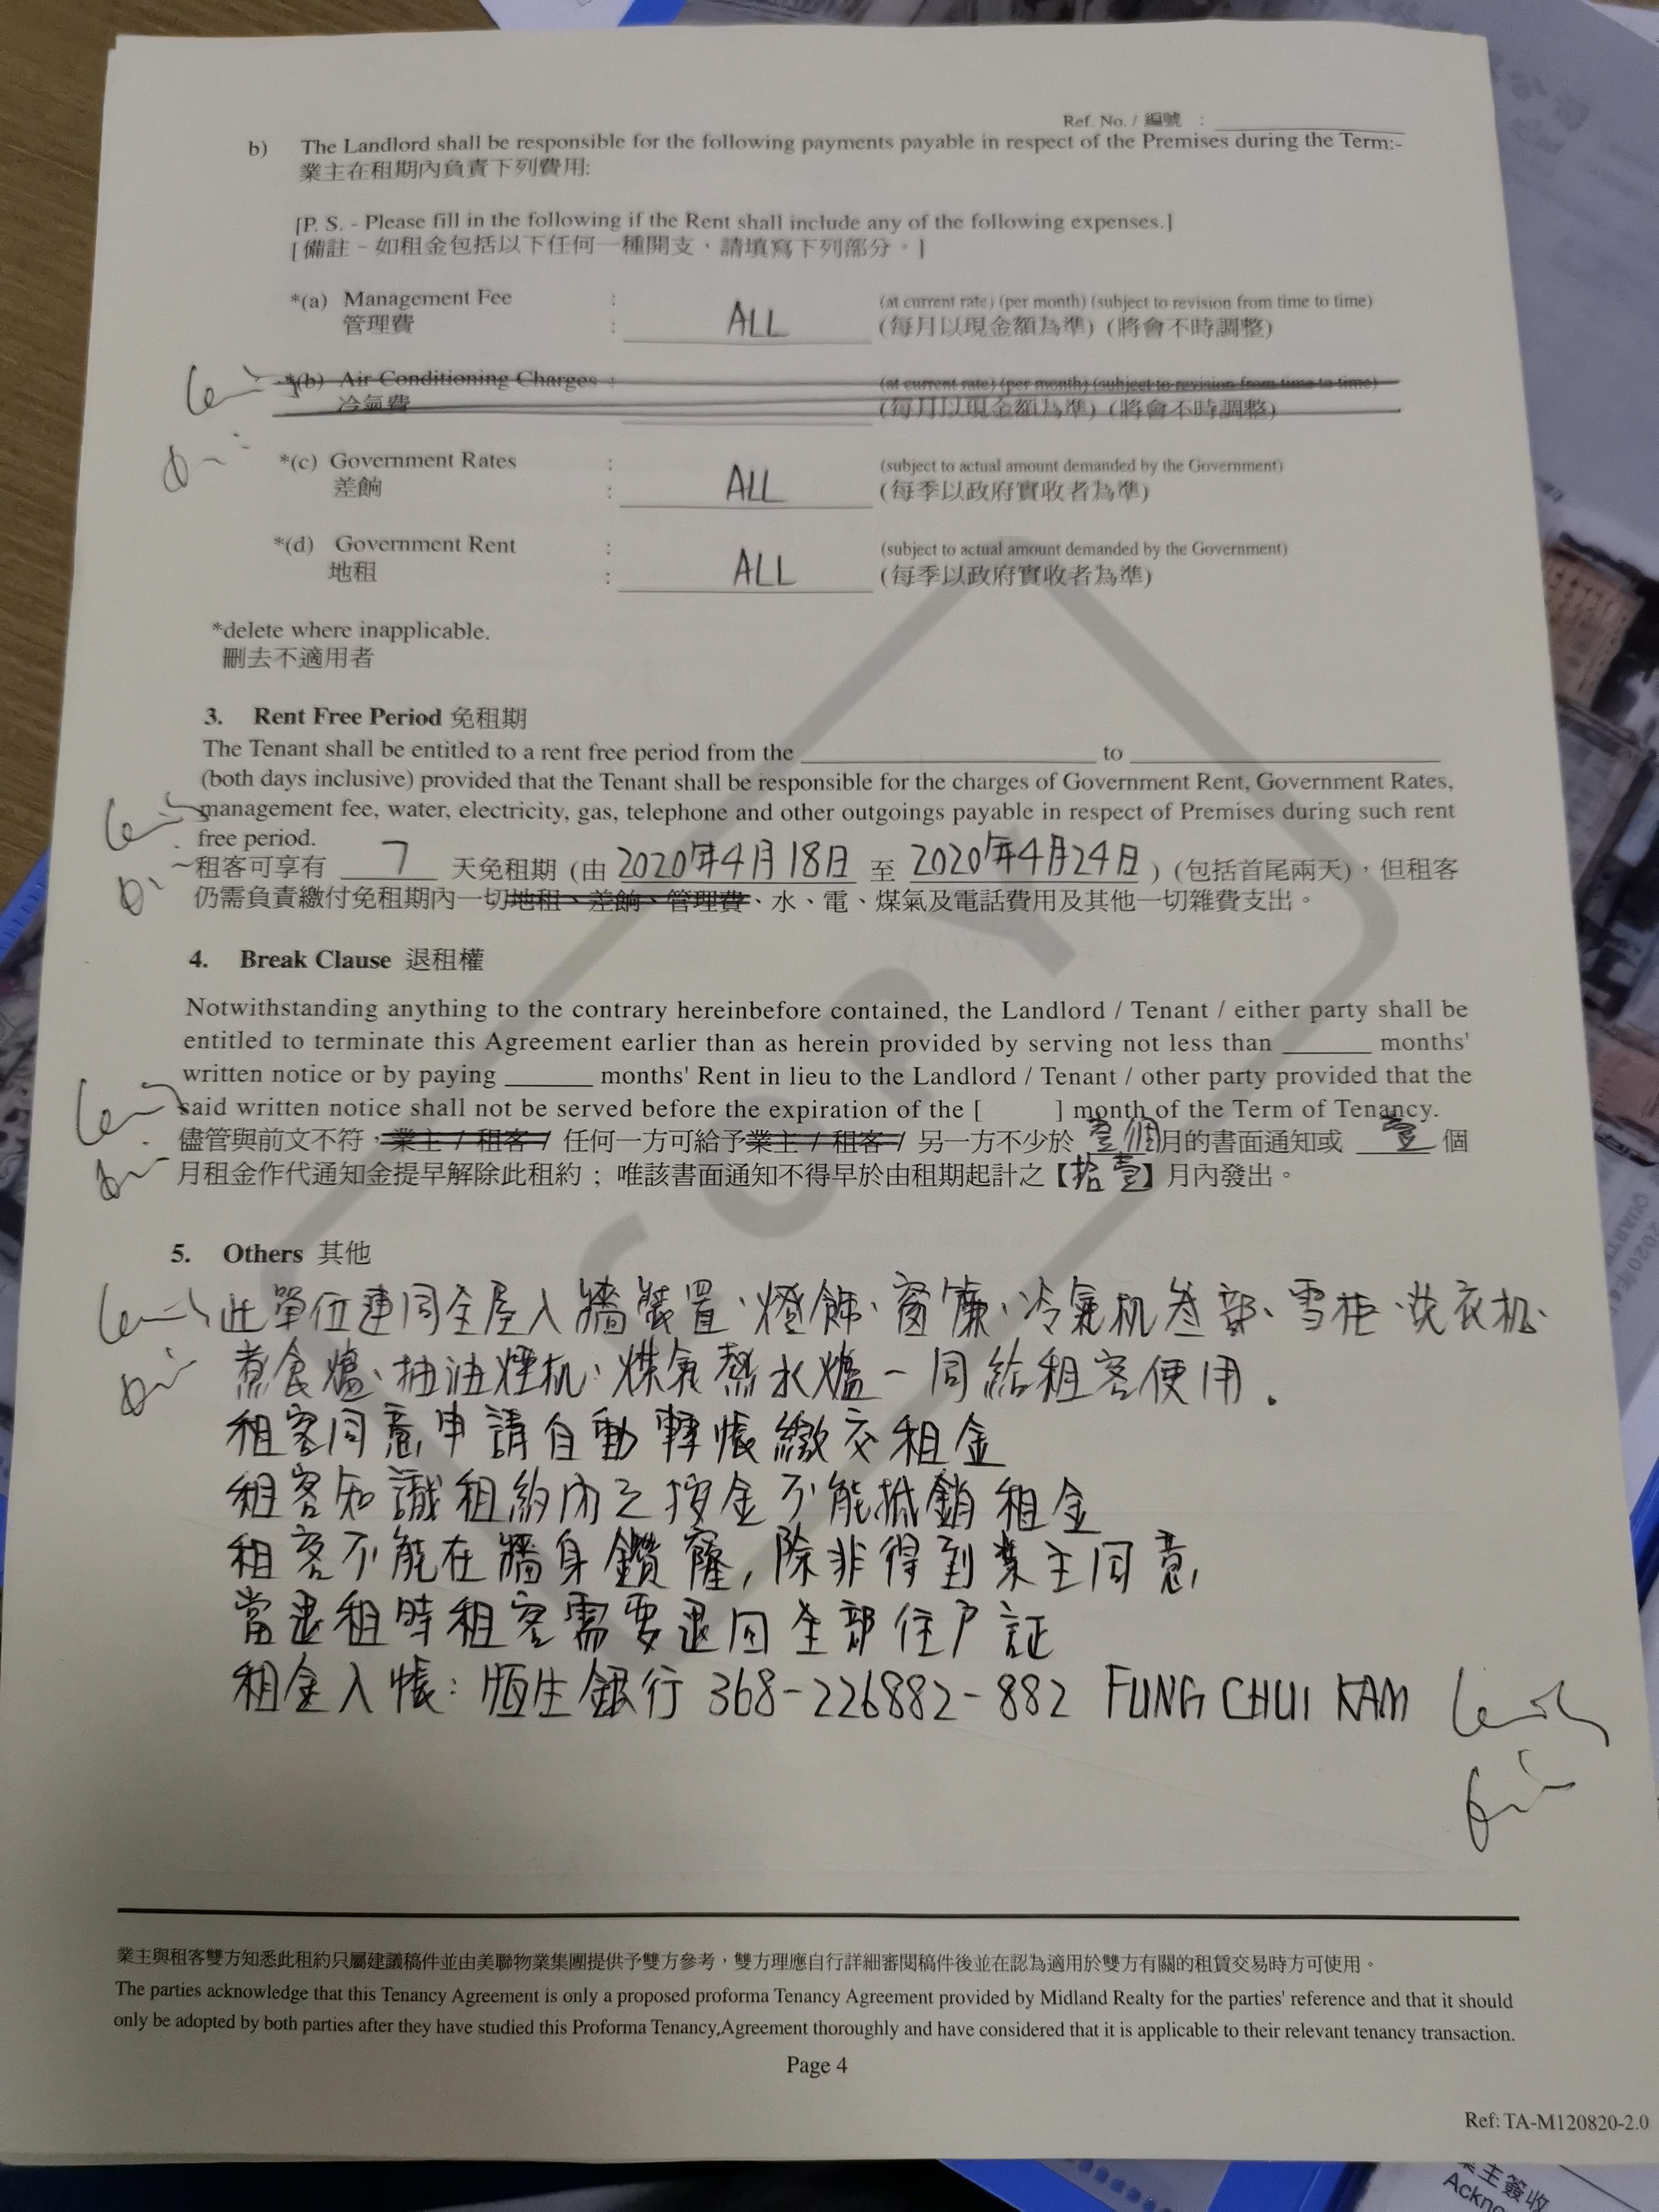 Ref. No. / 編號 :
b) The Landlord shall be responsible for the following payments payable in respect of the Premises during the Term:-
業主在租期內負責下列費用:
[P. S. - Please fill in the following if the Rent shall include any of the following expenses.]
[備註 - 如租金包括以下任何一種開支，請填寫下列部分。]
*(a) Management Fee : (at current rate) (per month) (subject to revision from time to time)
管理費 : ALL (每月以現金額為準) (將會不時調整)
*(b) Air Conditioning Charges : (at current rate) (per month) (subject to revision from time to time)
冷氣費 (每月以現金額為準) (將會不時調整)
*(c) Government Rates : (subject to actual amount demanded by the Government)
差餉 : ALL (每季以政府實收者為準)
*(d) Government Rent : (subject to actual amount demanded by the Government)
地租 : ALL (每季以政府實收者為準)
*delete where inapplicable.
刪去不適用者
3. Rent Free Period 免租期
The Tenant shall be entitled to a rent free period from the ____ to ____
(both days inclusive) provided that the Tenant shall be responsible for the charges of Government Rent, Government Rates,
management fee, water, electricity, gas, telephone and other outgoings payable in respect of Premises during such rent
free period.
租客可享有 7 天免租期 (由 2020年4月18日 至 2020年4月24日 ) (包括首尾兩天)，但租客
仍需負責繳付免租期內一切地租、差餉、管理費、水、電、煤氣及電話費用及其他一切雜費支出。
4. Break Clause 退租權
Notwithstanding anything to the contrary hereinbefore contained, the Landlord / Tenant / either party shall be
entitled to terminate this Agreement earlier than as herein provided by serving not less than ____ months'
written notice or by paying ____ months' Rent in lieu to the Landlord / Tenant / other party provided that the
said written notice shall not be served before the expiration of the [ ] month of the Term of Tenancy.
儘管與前文不符，業主 / 租客 / 任何一方可給予業主 / 租客 / 另一方不少於 壹個月的書面通知或 壹 個
月租金作代通知金提早解除此租約；唯該書面通知不得早於由租期起計之【拾壹】月內發出。
5. Others 其他
此單位連同全屋入牆裝置、燈飾、窗簾、冷氣机叁部、雪柜、洗衣机、
煮食爐、抽油煙机、煤氣熱水爐一同給租客使用.
租客同意申請自動轉帳繳交租金
租客知識租約內之按金不能抵銷租金
租客不能在牆身鑽窿,除非得到業主同意
當退租時租客需要退回全部住户証
租金入帳: 恒生銀行 368-226882-882 FUNG CHUI KAM
COPY
業主與租客雙方知悉此租約只屬建議稿件並由美聯物業集團提供予雙方參考，雙方理應自行詳細審閱稿件後並在認為適用於雙方有關的租賃交易時方可使用。
The parties acknowledge that this Tenancy Agreement is only a proposed proforma Tenancy Agreement provided by Midland Realty for the parties' reference and that it should
only be adopted by both parties after they have studied this Proforma Tenancy Agreement thoroughly and have considered that it is applicable to their relevant tenancy transaction.
Page 4
Ref: TA-M120820-2.0
業主簽收